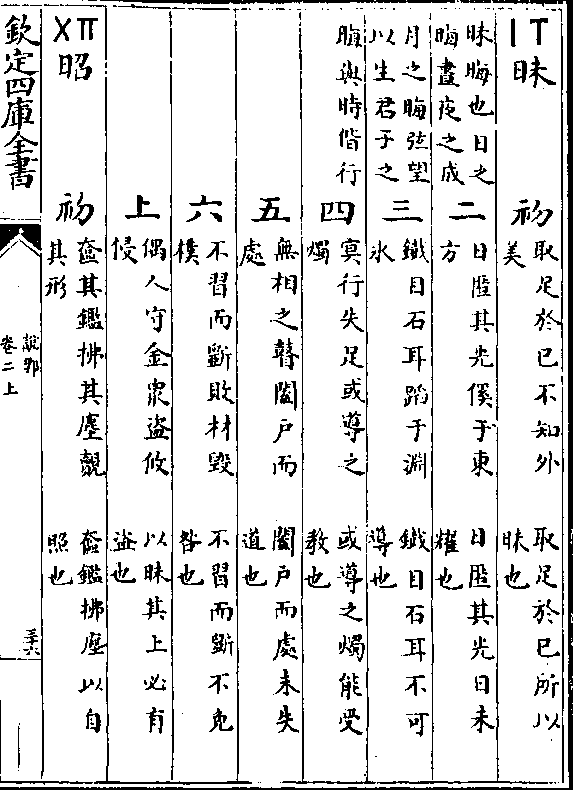 丨丅昧
昧晦也日之
晦晝夜之成
月之晦弦望
以生君子之
晦與時偕行
初
取足於已不知外
美
取足於已所以
昧也
二
日匿其光傒于東
方
日匿其光日未
耀也
三
鐵目石耳蹈于淵
氷
鐵目石耳不可
導也
四
㝠行失足或導之
燭
或導之燭能受
教也
五
無相之瞽闔戶而
處
闔戶而處未失
道也
六
不習而斵敗材毀
樸
不習而斵不免
咎也
上
偶人守金衆盜攸
侵
以昧其上必有
盜也
Ⅹㄫ昭
初
奩其鑑拂其塵覿
其形
奩鑑拂塵以自
照也
欽定四庫全書
説郛
卷二上
三十六